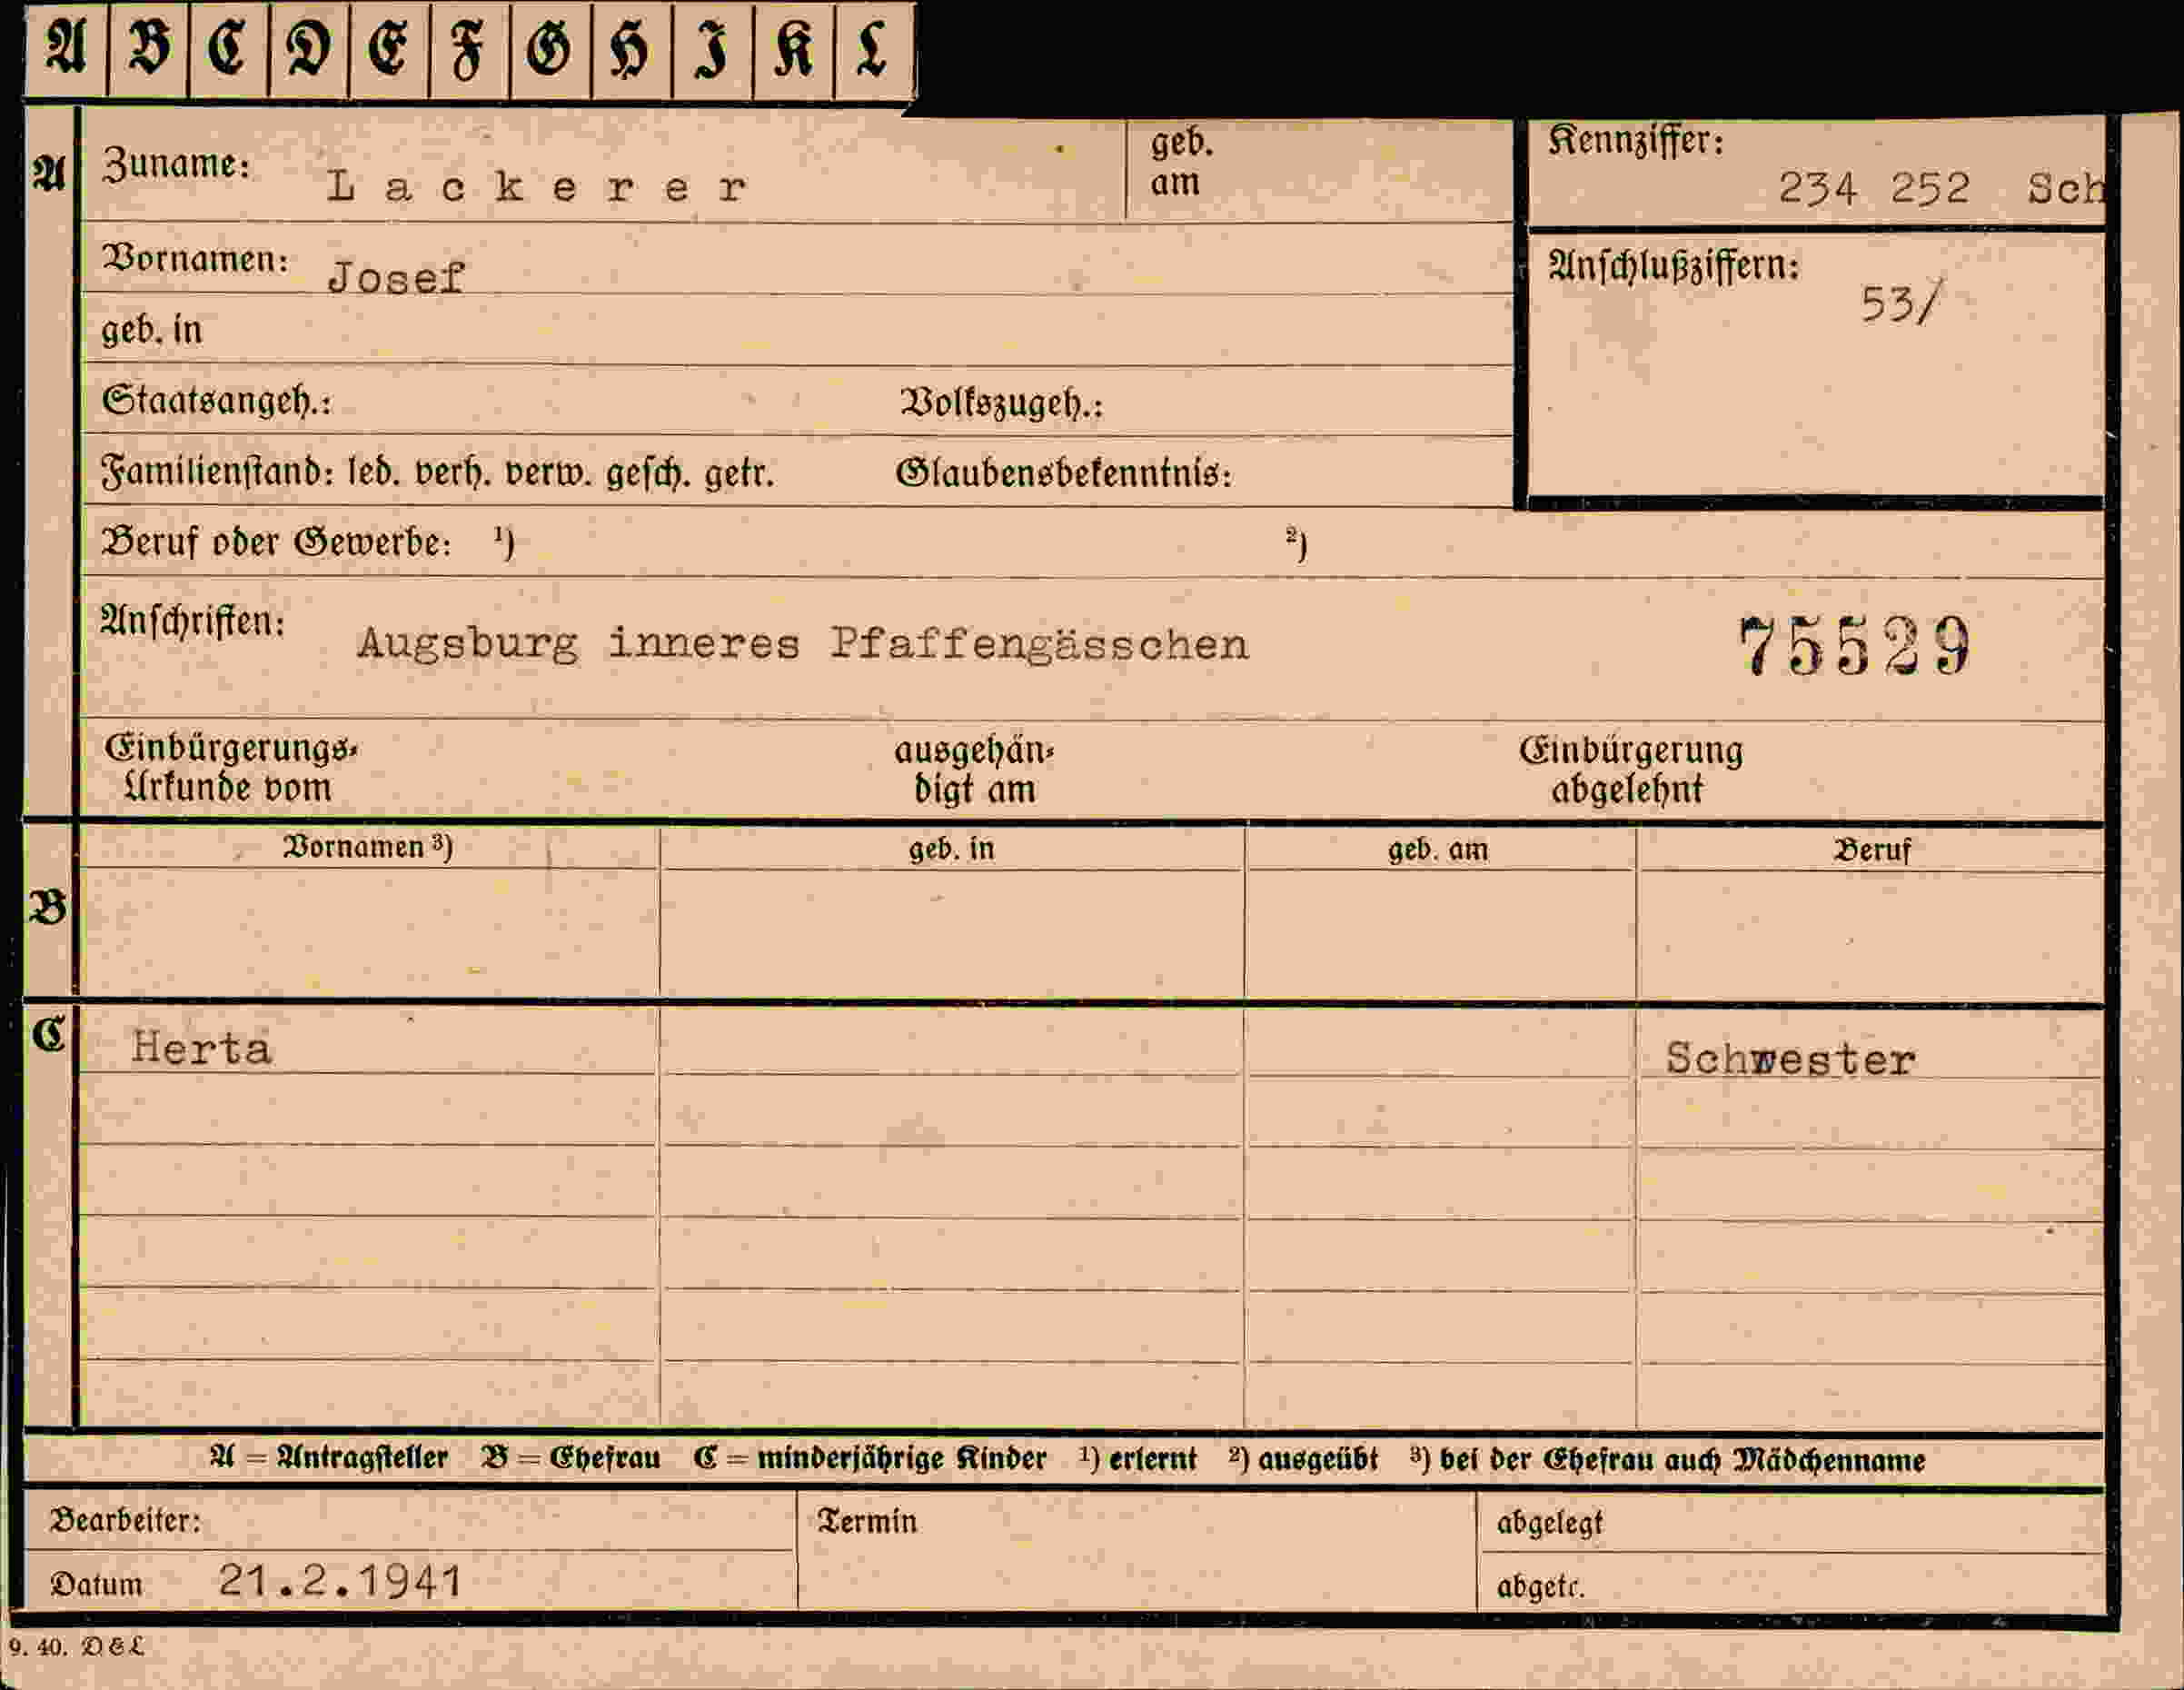 A B C D E F G H J K L
A Zuname: Lackerer geb. am Kennziffer: 234 252 Sch
Vornamen: Josef Anschlußziffern: 53/
geb. in
Staatsangeh.: Volkszugeh.:
Familienstand: led. verh. verw. gesch. getr. Glaubensbekenntnis:
Beruf oder Gewerbe: ¹) ²)
Anschriften: Augsburg inneres Pfaffengässchen 75529
Einbürgerungs- ausgehän- Einbürgerung
Urkunde vom digt am abgelehnt
Vornamen ³) geb. in geb. am Beruf
B
C Herta Schwester
A = Antragsteller B = Ehefrau C = minderjährige Kinder ¹) erlernt ²) ausgeübt ³) bei der Ehefrau auch Mädchenname
Bearbeiter: Termin abgelegt
Datum 21.2.1941 abgetr.
9. 40. D&L